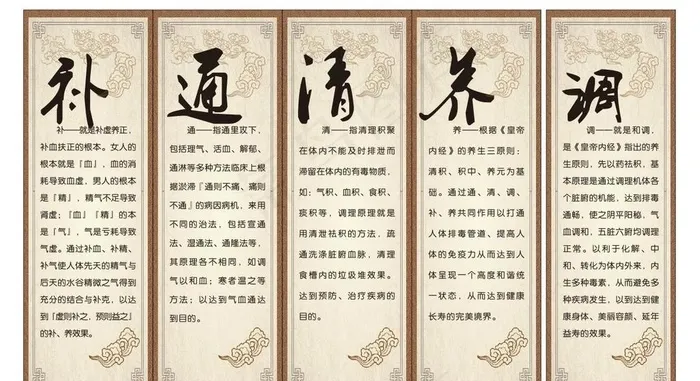 补
补——就是补虚养正，
补血扶正的根本。女人的
根本就是『血』，血的消
耗导致血虚，男人的根本
是『精』，精气不足导致
肾虚；『血』『精』的本
是『气』，气是亏耗导致气
虚。通过补血、补精、
补气使人体先天的精气与
后天的水谷精微之气得到
充分的结合与补充，以达到
『虚则补之，预则益之』
的补、养效果。
通
通——指通里攻下，
包括理气、活血、解郁、
通淋等多种方法临床上根
据淤滞『通则不痛、痛则
不通』的病因病机，来用
不同的治法，包括宣通
法、湿通法、通隆法等，
其原理各不相同，如调
气以和血；寒者温之等
方法；以达到气血通达
的目的。
清
清——指清理积聚
在体内不能及时排泄而
滞留在体内的有毒物质，
如：气积、血积、食积、
痰积等，调理原理就是
用清泄祛积的方法，疏
通洗涤脏腑血脉，清理
食槽内的垃圾堆效果。
达到预防、治疗疾病的
目的。
养
养——根据《皇帝
内经》的养生三原则：
清积、积中、养元为基
础。通过通、清、调、
补、养共同作用以打通
人体排毒管道、提高人
体的免疫力从而达到人
体呈现一个高度和谐统
一状态，从而达到健康
长寿的完美境界。
调
调——就是和调，
是《皇帝内经》指出的养
生原则，先以药祛积，基
本原理是通过调理机体各
个脏腑的机能，达到排毒
通畅，使之阴平阳秘，气
血调和，五脏六腑均调理
正常。以利于化解、中
和、转化为体内外来，内
生多种毒素，从而避免多
种疾病发生，以到达健
康身体、美丽容颜、延年
益寿的效果。